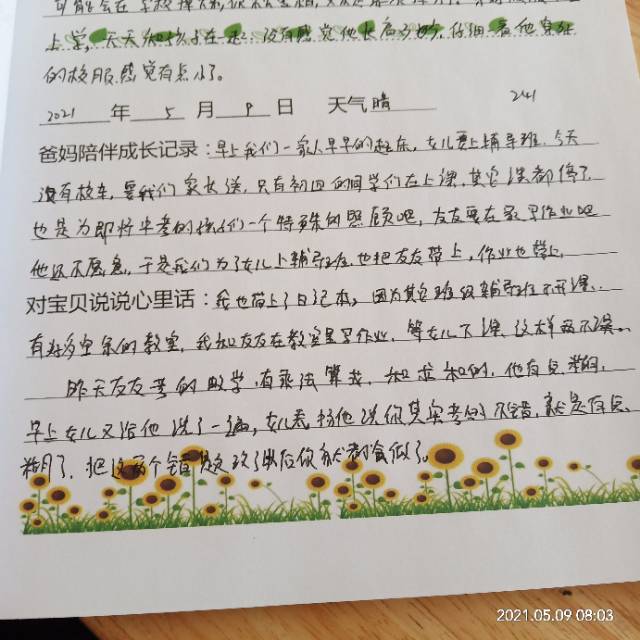 上学,天天和孩子在一起,没有感觉他长高了多少,仔细看他穿在
的校服感觉有点小了。
2021 年 5 月 9 日 天气 晴 241
爸妈陪伴成长记录:早上我们一家人早早的起床,女儿要上辅导班,今天
没有校车,要我们家长送,只有初四的同学们在上课,其它课都停了
也是为即将中考的孩们一个特殊的照顾吧,友友要在家写作业吧
他还不愿意,于是我们为了女儿上辅导班也把友友带上,作业也带上
对宝贝说说心里话:我也带上了日记本,因为其它班级辅导班不开课,
有好多空余的教室,我和友友在教室里写作业,等女儿下课,这样两不误。
昨天友友考的数学,有乘法算式,和求和的,他有点糊,
早上女儿又给他讲了一遍,女儿表扬他说你其实考的不错,就是有点
糊了,把这两个错题改了以后你就都会做了。
2021.05.09 08:03